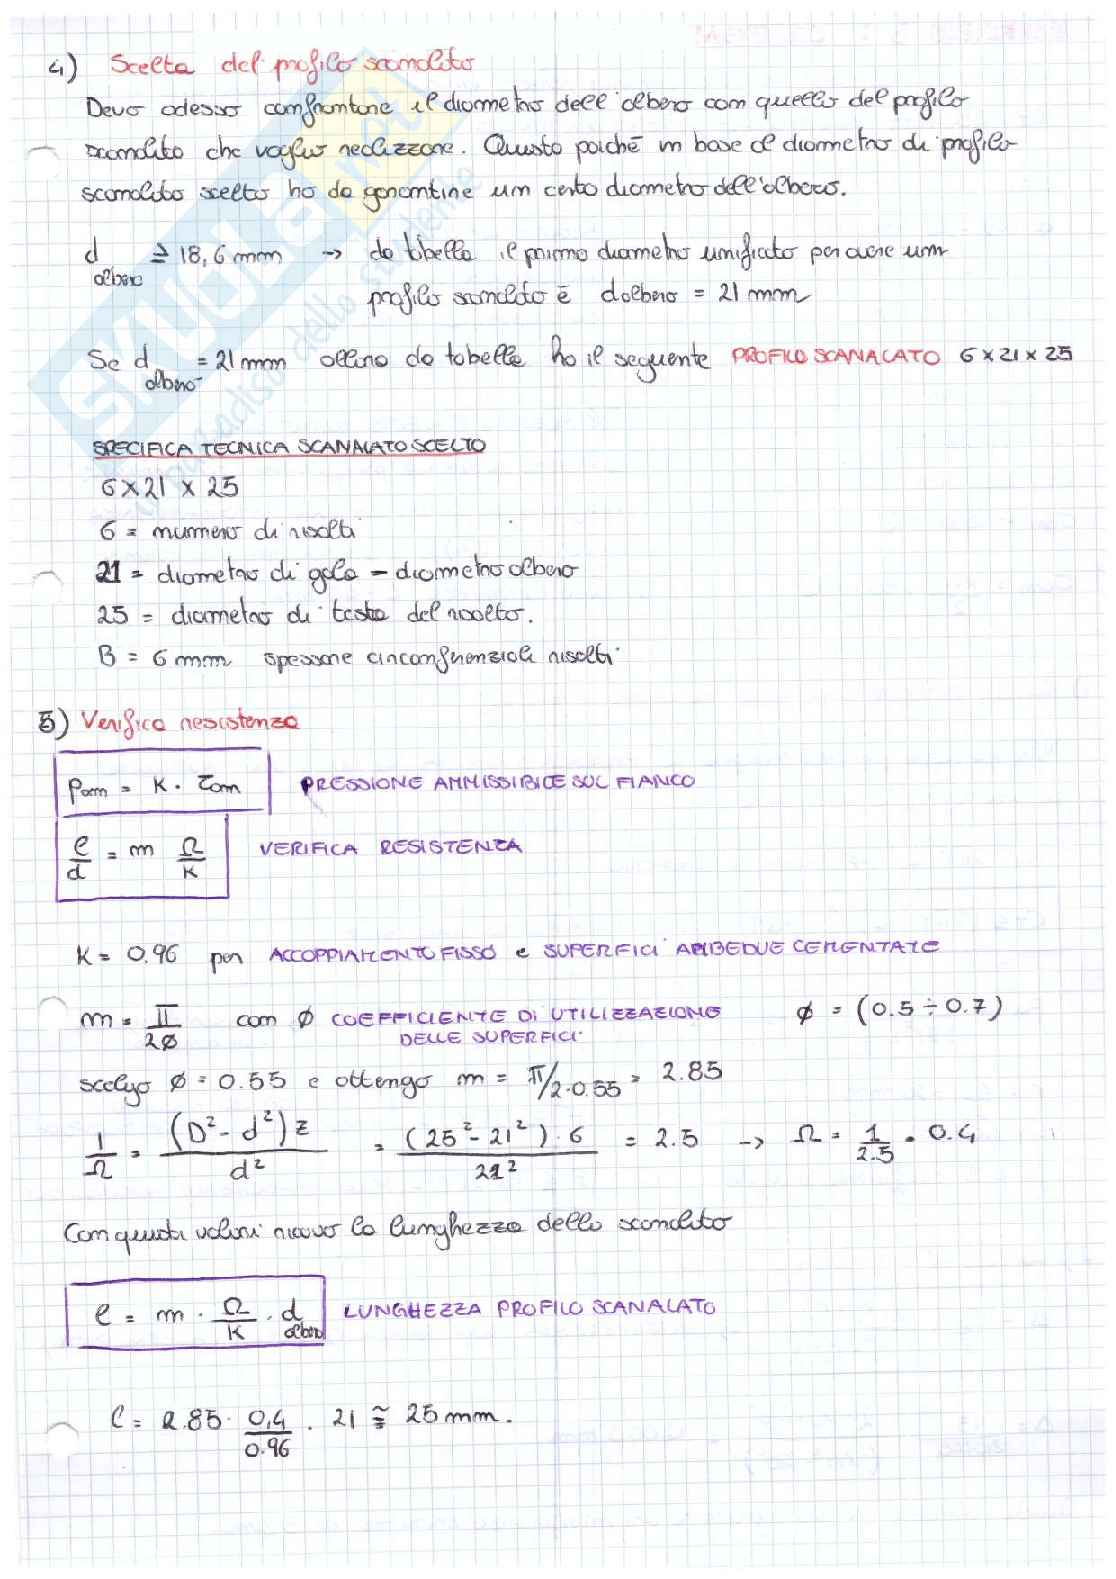 4) Scelta del profilo scanalato
Devo adesso confrontare il diametro dell'albero con quello del profilo
scanalato che voglio realizzare. Questo poichè in base al diametro di profilo
scanalato scelto ho da garantire un certo diametro dell'albero.
d albero ≅ 18,6 mm → da tabella il primo diametro unificato per avere un
profilo scanalato è d albero = 21 mm
Se d albero = 21 mm allora da tabella ho il seguente PROFILO SCANALATO 6 x 21 x 25
SPECIFICA TECNICA SCANALATO SCELTO
6 x 21 x 25
6 = numero di risalti
21 = diametro di gola - diametro albero
25 = diametro di testa del risalto.
B = 6 mm spessore circonfrenziali risalti
5) Verifica resistenza
Pam = K · τam PRESSIONE AMMISSIBILE SUL FIANCO
l/d = m Ω/K VERIFICA RESISTENZA
K = 0.96 per ACCOPPIAMENTO FISSO e SUPERFICI AMBEDUE CEMENTATE
m = π/2ϕ con ϕ COEFFICIENTE DI UTILIZZAZIONE ϕ = (0.5 ÷ 0.7)
DELLE SUPERFICI
scelgo ϕ = 0.55 e ottengo m = π/2·0.55 = 2.85
1/Ω = (D² - d²) z / d² = (25² - 21²) · 6 / 21² = 2.5 → Ω = 1/2.5 = 0.4
Con questi valori ricavo la lunghezza dello scanalato
l = m · Ω/K · d albero LUNGHEZZA PROFILO SCANALATO
l = 2.85 · 0,4/0.96 · 21 ≅ 25 mm.
SKUOLA.net
il paradiso dello studente